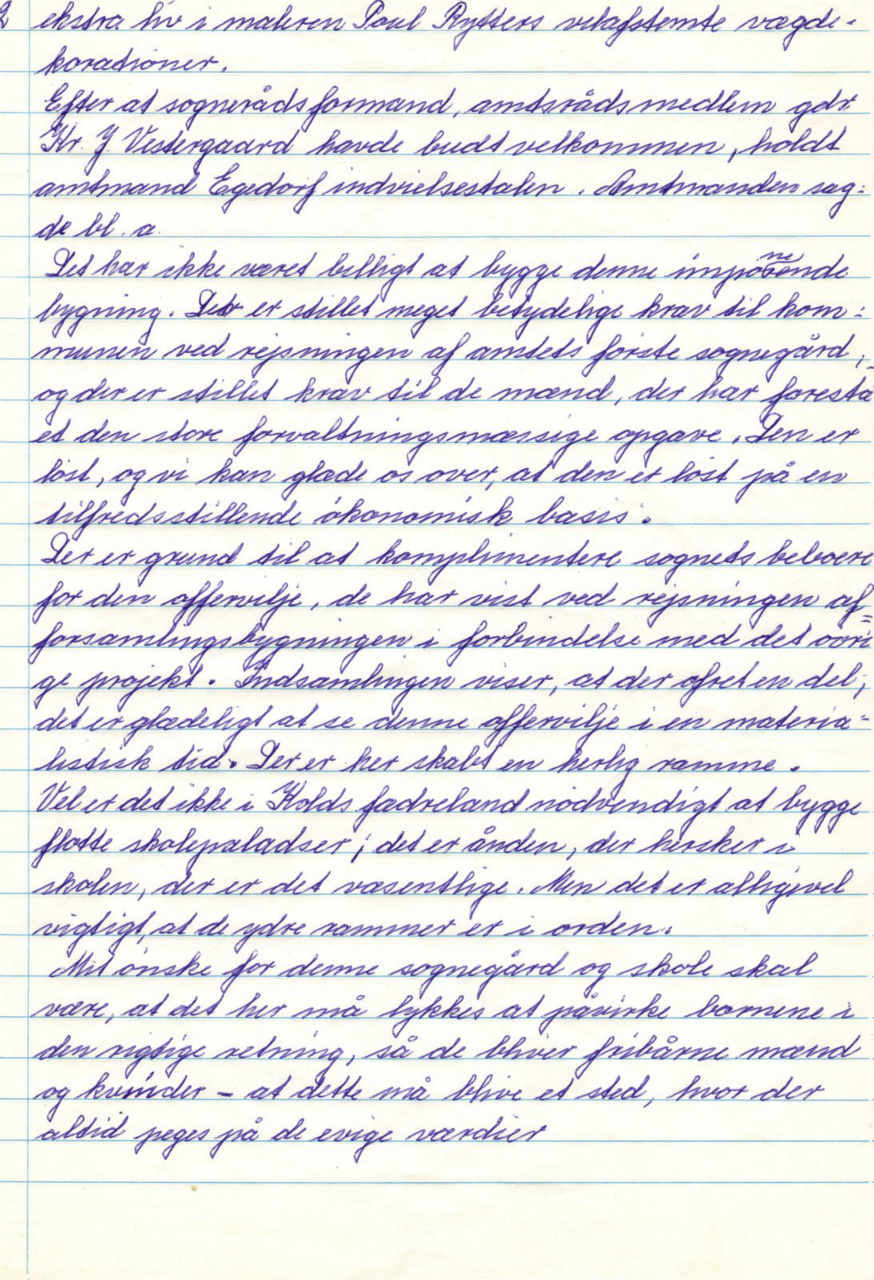 2 ekstra liv i maleren Poul Rytters velafstemte vægde-
korationer.
Efter at sognerådsformand, amtsrådsmedlem gdr
Kr. J Vestergaard havde budt velkommen, holdt
amtmand Egedorf indvielsestalen. Amtmanden sag=
de bl. a.
Det har ikke været billigt at bygge denne imponerende
bygning. Det er stillet meget betydelige krav til kom=
munen ved rejsningen af amtets første sognegård,
og der er stillet krav til de mænd, der har forestå-
et den store forvaltningsmæssige opgave. Den er
løst, og vi kan glæde os over, at den er løst på en
tilfredsstillende økonomisk basis.
Der er grund til at komplimentere sognets beboere
for den offervilje, de har vist ved rejsningen af
forsamlingsbygningen i forbindelse med det øvri=
ge projekt. Indsamlingen viser, at der ofret en del;
det er glædeligt at se denne offervilje i en materia=
listisk tid. Der er her skabt en herlig ramme.
Vel er det ikke i Kolds fædreland nødvendigt at bygge
flotte skolepaladser; det er ånden, der hersker i
skolen, der er det væsentlige. Men det er alligevel
vigtigt, at de ydre rammer er i orden.
Mit ønske for denne sognegård og skole skal
være, at det her må lykkes at påvirke børnene i
den rigtige retning, så de bliver fribårne mænd
og kvinder - at dette må blive et sted, hvor der
altid peges på de evige værdier